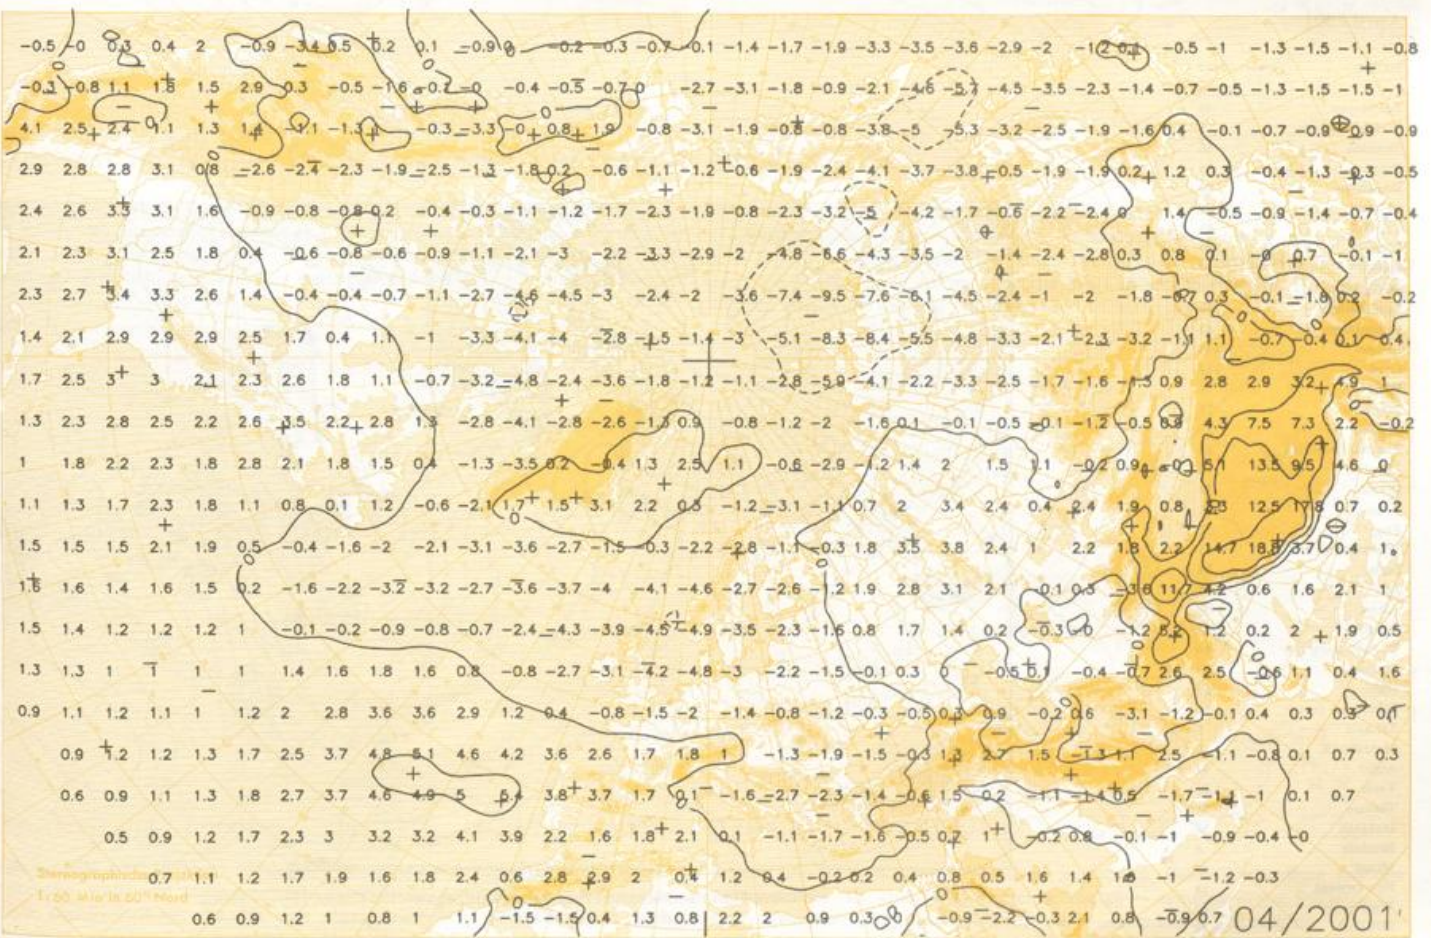 -0.5 -0 0.3 0.4 2 -0.9 -3.4 0.5 0.2 0.1 -0.9 0 -0.2 -0.3 -0.7 -0.1 -1.4 -1.7 -1.9 -3.3 -3.5 -3.6 -2.9 -2 -1.2 0.1 -0.5 -1 -1.3 -1.5 -1.1 -0.8
-0.3 -0.8 1.1 1.8 1.5 2.9 0.3 -0.5 -1.6 -0.7 -0 -0.4 -0.5 -0.7 0 -2.7 -3.1 -1.8 -0.9 -2.1 -4.6 -5.7 -4.5 -3.5 -2.3 -1.4 -0.7 -0.5 -1.3 -1.5 -1.5 -1
4.1 2.5 2.4 1.1 1.3 1.4 -1.1 -1.3 -0.3 -3.3 -0 0.8 1.9 -0.8 -3.1 -1.9 -0.8 -0.8 -3.8 -5 -5.3 -3.2 -2.5 -1.9 -1.6 0.4 -0.1 -0.7 -0.9 -0.9 -0.9
2.9 2.8 2.8 3.1 0.8 -2.6 -2.4 -2.3 -1.9 -2.5 -1.3 -1.8 0.2 -0.6 -1.1 -1.2 -0.6 -1.9 -2.4 -4.1 -3.7 -3.8 -0.5 -1.9 -1.9 0.2 1.2 0.3 -0.4 -1.3 -0.3 -0.5
2.4 2.6 3.3 3.1 1.6 -0.9 -0.8 -0.8 0.2 -0.4 -0.3 -1.1 -1.2 -1.7 -2.3 -1.9 -0.8 -2.3 -3.2 -5 -4.2 -1.7 -0.6 -2.2 -2.4 0 1.4 -0.5 -0.9 -1.4 -0.7 -0.4
2.1 2.3 3.1 2.5 1.8 0.4 -0.6 -0.8 -0.6 -0.9 -1.1 -2.1 -3 -2.2 -3.3 -2.9 -2 -4.8 -6.6 -4.3 -3.5 -2 -1.4 -2.4 -2.8 0.3 0.8 0.1 -0 0.7 -0.1 -1
2.3 2.7 3.4 3.3 2.6 1.4 -0.4 -0.4 -0.7 -1.1 -2.7 -4.6 -4.5 -3 -2.4 -2 -3.6 -7.4 -9.5 -7.6 -6.1 -4.5 -2.4 -1 -2 -1.8 -0.7 0.3 -0.1 -1.8 0.2 -0.2
1.4 2.1 2.9 2.9 2.9 2.5 1.7 0.4 1.1 -1 -3.3 -4.1 -4 -2.8 -1.5 -1.4 -3 -5.1 -8.3 -8.4 -5.5 -4.8 -3.3 -2.1 -2.3 -3.2 -1.1 1.1 -0.7 -0.4 0.1 0.4
1.7 2.5 3 3 2.1 2.3 2.6 1.8 1.1 -0.7 -3.2 -4.8 -2.4 -3.6 -1.8 -1.2 -1.1 -2.8 -5.9 -4.1 -2.2 -3.3 -2.5 -1.7 -1.6 -1.3 0.9 2.8 2.9 3.2 4.9 1
1.3 2.3 2.8 2.5 2.2 2.6 3.5 2.2 2.8 1.3 -2.8 -4.1 -2.8 -2.6 -1.3 0.9 -0.8 -1.2 -2 -1.6 0.1 -0.1 -0.5 -0.1 -1.2 -0.5 0.9 4.3 7.5 7.3 2.2 -0.2
1 1.8 2.2 2.3 1.8 2.8 2.1 1.8 1.5 0.4 -1.3 -3.5 0.2 -0.4 1.3 2.5 1.1 -0.6 -2.9 -1.2 1.4 2 1.5 1.1 -0.2 0.9 -0 5.1 13.5 9.5 4.6 0
1.1 1.3 1.7 2.3 1.8 1.1 0.8 0.1 1.2 -0.6 -2.1 1.7 1.5 3.1 2.2 0.3 -1.2 -3.1 -1.1 0.7 2 3.4 2.4 0.4 2.4 1.9 0.8 12.5 17.8 0.7 0.2
1.5 1.5 1.5 2.1 1.9 0.5 -0.4 -1.6 -2 -2.1 -3.1 -3.6 -2.7 -1.5 -0.3 -2.2 -2.8 -1.1 -0.3 1.8 3.5 3.8 2.4 1 2.2 1.8 2.2 14.7 18.8 3.7 0.4 1
1.6 1.6 1.4 1.6 1.5 0.2 -1.6 -2.2 -3.2 -3.2 -2.7 -3.6 -3.7 -4 -4.1 -4.6 -2.7 -2.6 -1.2 1.9 2.8 3.1 2.1 -0.1 0.3 11.7 4.2 0.6 1.6 2.1 1
1.5 1.4 1.2 1.2 1.2 1 -0.1 -0.2 -0.9 -0.8 -0.7 -2.4 -4.3 -3.9 -4.5 -4.9 -3.5 -2.3 -1.6 0.8 1.7 1.4 0.2 -0.3 -0 -1.2 5.2 1.2 0.2 2 1.9 0.5
1.3 1.3 1 1 1 1 1.4 1.6 1.8 1.6 0.8 -0.8 -2.7 -3.1 -4.2 -4.8 -3 -2.2 -1.5 -0.1 0.3 0 -0.5 0.1 -0.4 -0.7 2.6 2.5 -0.6 1.1 0.4 1.6
0.9 1.1 1.2 1.1 1 1.2 2 2.8 3.6 3.6 2.9 1.2 0.4 -0.8 -1.5 -2 -1.4 -0.8 -1.2 -0.3 -0.5 0.3 0.9 -0.2 0.6 -3.1 -1.2 -0.1 0.4 0.3 0.3 0.1
0.9 1.2 1.2 1.3 1.7 2.5 3.7 4.8 5.1 4.6 4.2 3.6 2.6 1.7 1.8 1 -1.3 -1.9 -1.5 -0.3 1.3 2.7 1.5 -1.3 1.1 2.5 -1.1 -0.8 0.1 0.7 0.3
0.6 0.9 1.1 1.3 1.8 2.7 3.7 4.6 4.9 5 5.4 3.8 3.7 1.7 0.1 -1.6 -2.7 -2.3 -1.4 -0.6 1.5 0.2 -1.1 -1.4 0.5 -1.7 -1.1 -1 0.1 0.7
0.5 0.9 1.2 1.7 2.3 3 3.2 3.2 4.1 3.9 2.2 1.6 1.8 2.1 0.1 -1.1 -1.7 -1.6 -0.5 0.7 1 -0.2 0.8 -0.1 -1 -0.9 -0.4 -0
0.7 1.1 1.2 1.7 1.9 1.6 1.8 2.4 0.6 2.8 2.9 2 0.4 1.2 0.4 -0.2 0.2 0.4 0.8 0.5 1.6 1.4 1.8 -1 -1.2 -0.3
0.6 0.9 1.2 1 0.8 1 1.1 -1.5 -1.5 0.4 1.3 0.8 2.2 2 0.9 0.3 0 -0.9 -2.2 -0.3 2.1 0.8 -0.9 0.7 04/2001